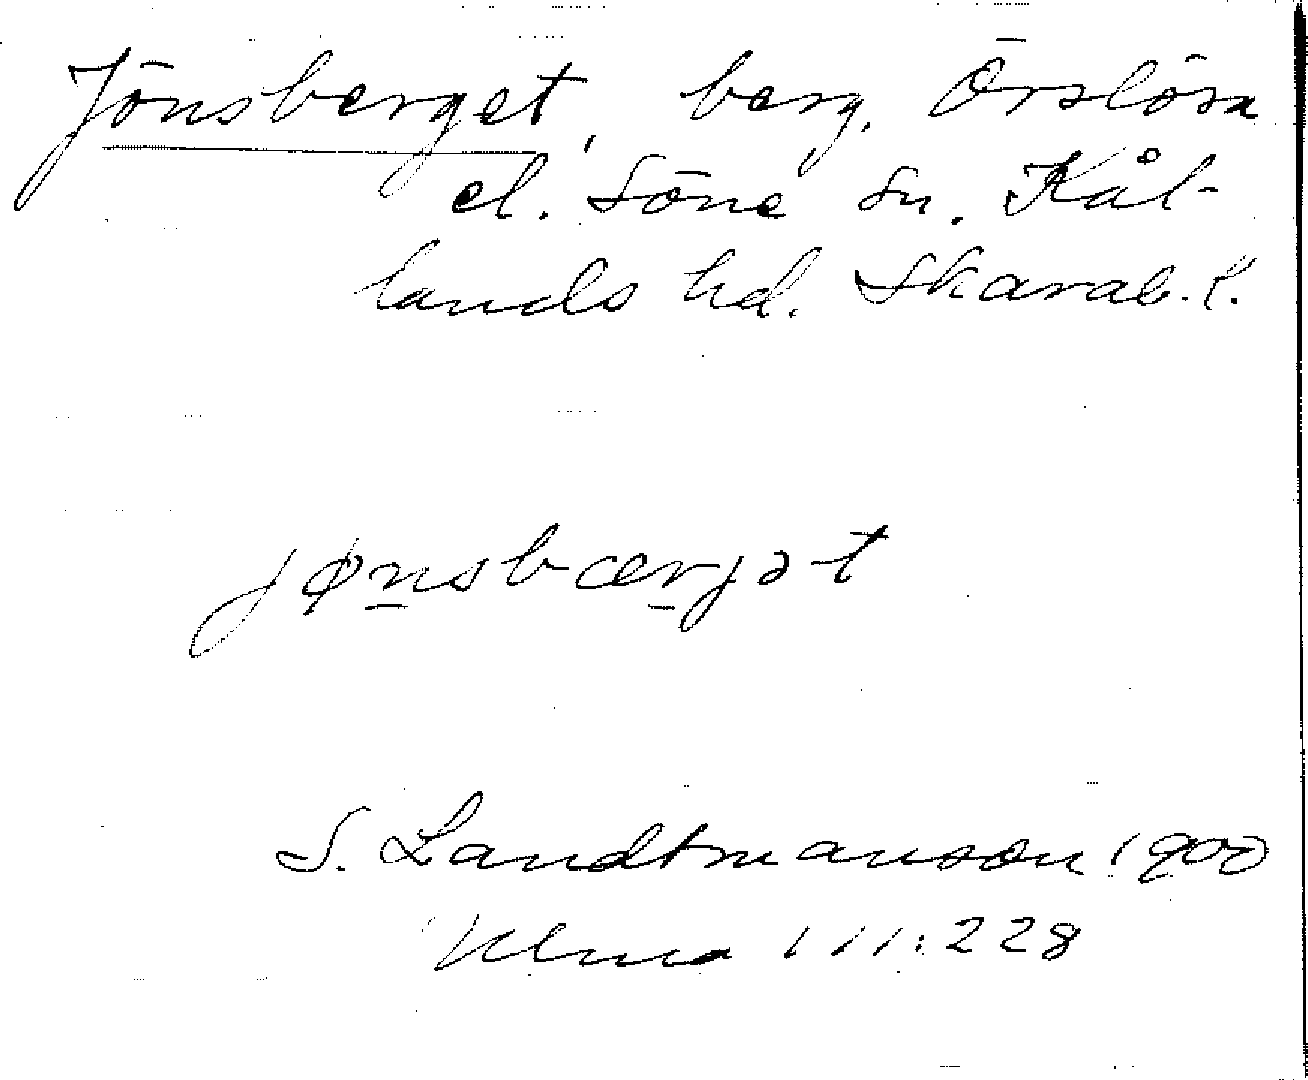 Jönsberget, berg, Örslösa
el. Söne sn. Kål-
lands hd. Skarab. l.
jønsbærjət
S. Landtmanson 1900
Ulma 111:228